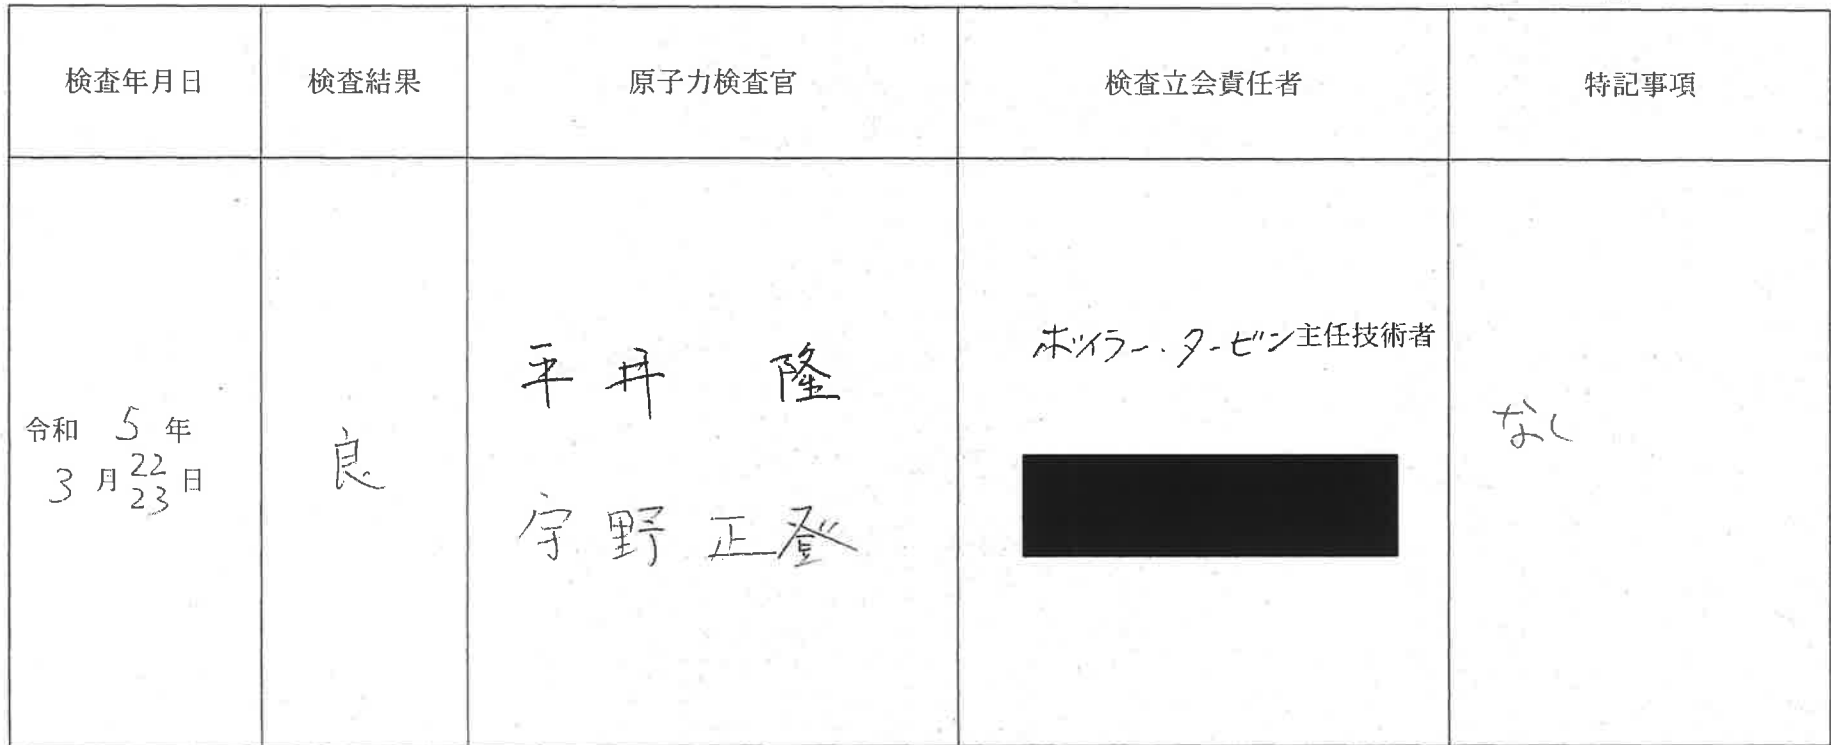 検査年月日 検査結果 原子力検査官 検査立会責任者 特記事項
令和 5 年
3 月 22 23 日
良
平井 隆
宇野 正登
ボイラー・タービン主任技術者
なし